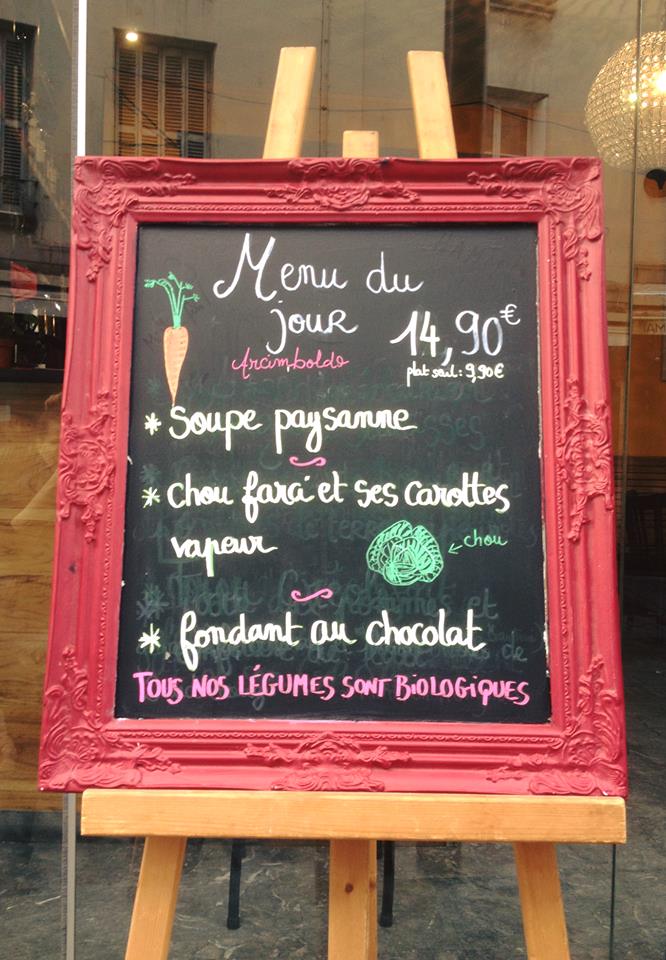 Menu du
jour
14,90€
Arcimboldo
plat seul : 9,90€
* Soupe paysanne
* chou farci et ses carottes
vapeur
← chou
* fondant au chocolat
TOUS NOS LÉGUMES SONT BIOLOGIQUES